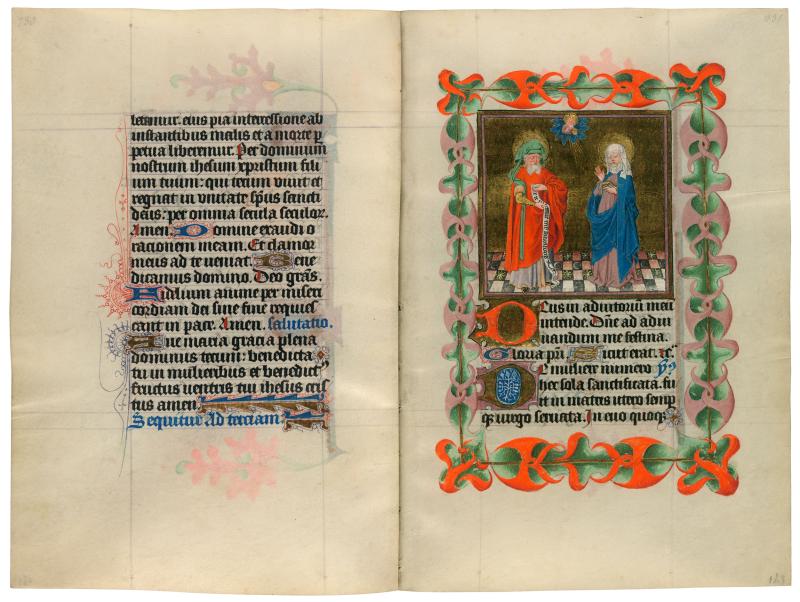 letamur. eius pia intercessione ab
instantibus malis et a morte p
petua liberemur. Per dominum
nostrum ihesum xpristum fili
um tuum: qui tecum vivit et
regnat in unitate spūs sancti
deus: per omnia secula seculor.
Amen. Domine exaudi o
rationem meam. Et clamor
meus ad te veniat. Bene
dicamus domino. Deo grās.
Fidelium anime per miseri
cordiam dei sine fine requies
cant in pace. Amen. salutatio.
Ave maria gracia plena
dominus tecum: benedicta
tu in mulieribus et benedict
fructus ventris tui ihesus cris
tus amen.
Sequitur ad terciam
Deus in adiutoriū meū
intende. Dñe ad adiu
uandum me festina.
Gloria pri Sicut erat. ec
P mulierū numero
hec sola sanctificata. fu
it in matris utero semp
qz virgo servata. In evo quoqz
123